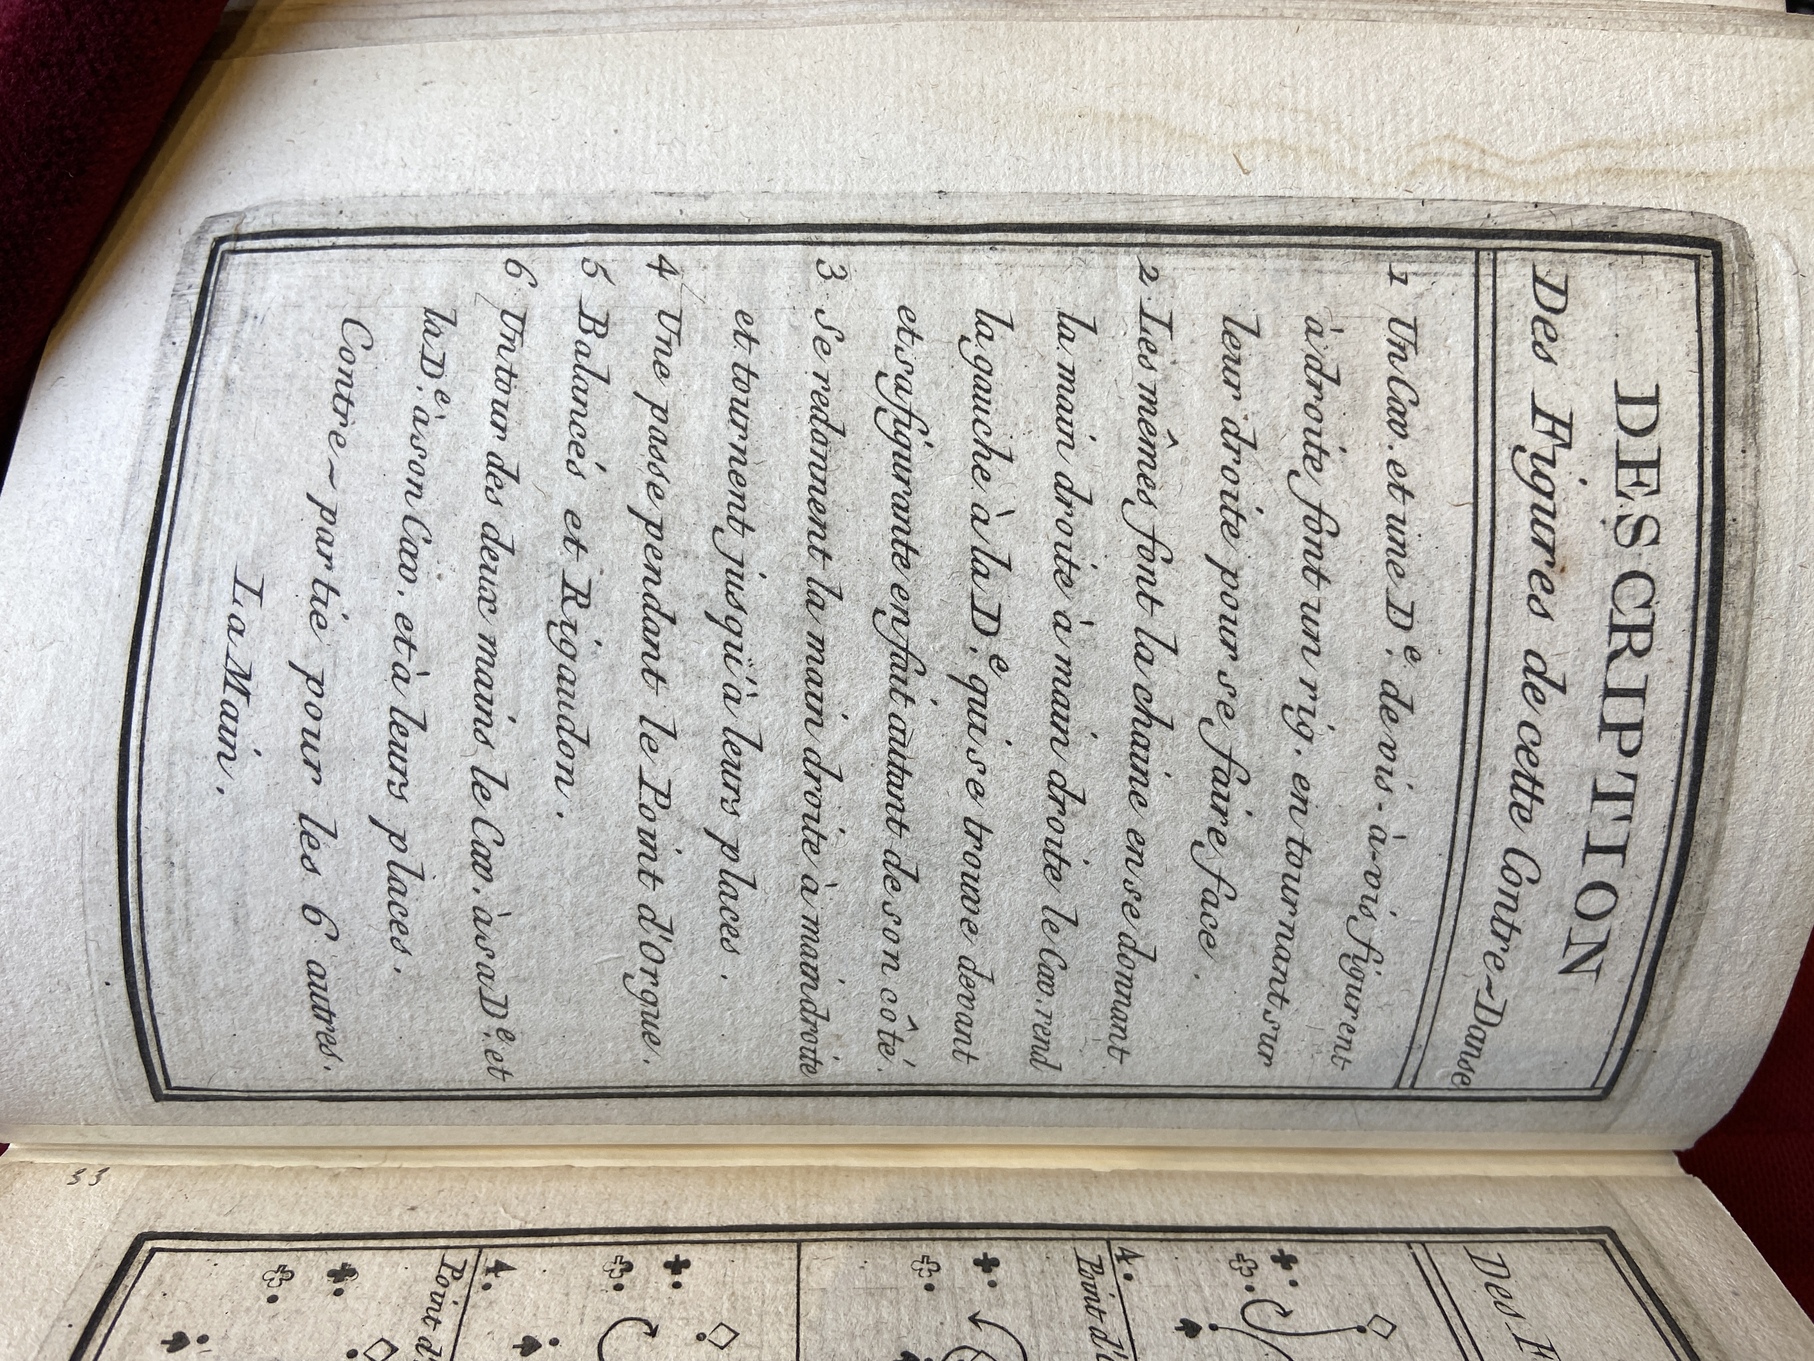 DESCRIPTION
Des Figures de cette Contre-Danse
1 Un Cav. et une D.e de vis-à-vis figurent
à droite font un rig. en tournant sur
leur droite pour se faire face.
2 Les mêmes font la chaine en se donnant
la main droite à main droite le Cav. rend
la gauche à la D.e qui se trouve devant
et sa figurante en fait autant de son côté.
3 Se redonnent la main droite à main droite
et tournent jusqu'à leurs places.
4 Une passe pendant le Point d'Orgue.
5 Balancés et Rigaudon.
6 Un tour des deux mains le Cav. à sa D.e et
la D.e à son Cav. et à leurs places.
Contre-partie pour les 6 autres.
La Main.
33
Des F
4.
Point d'
4.
Point d'